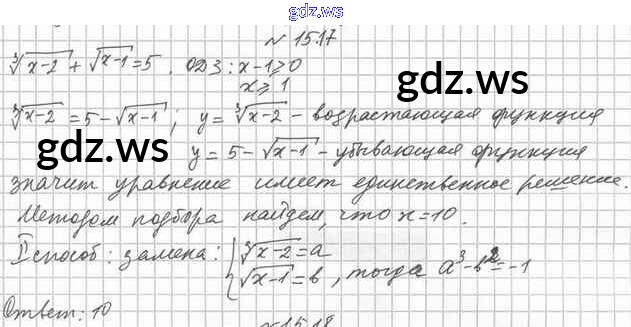 gdz.ws
№ 15.17
∛(x-2) + √(x-1) = 5. ОДЗ: x-1⩾0
x⩾1
gdz.ws
∛(x-2) = 5-√(x-1); y = ∛(x-2) - возрастающая функция
gdz.ws y = 5-√(x-1) - убывающая функция
значит уравнение имеет единственное решение.
Методом подбора найдем, что x=10.
II способ: замена: { ∛(x-2) = a
√(x-1) = b, тогда a³-b²=-1
Ответ: 10
№15.18